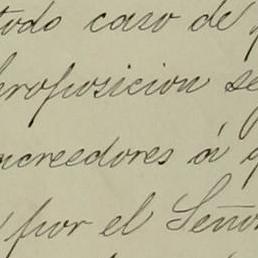 todo caso de p
proposicion se
acreedores á q
por el Señor